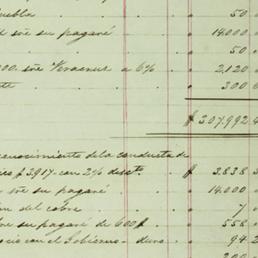 50
d sre su pagaré 14.000
50
000. sre Veracruz a 6% 2.120
300
$ 307,992 4
conocimiento de la conducta de
es $ 3.917 con 2% desct. $ 3.838
sre su pagaré 14.000
del cobre 7
re su pagaré de 600 $ 558
con el Gobierno 94 2
200